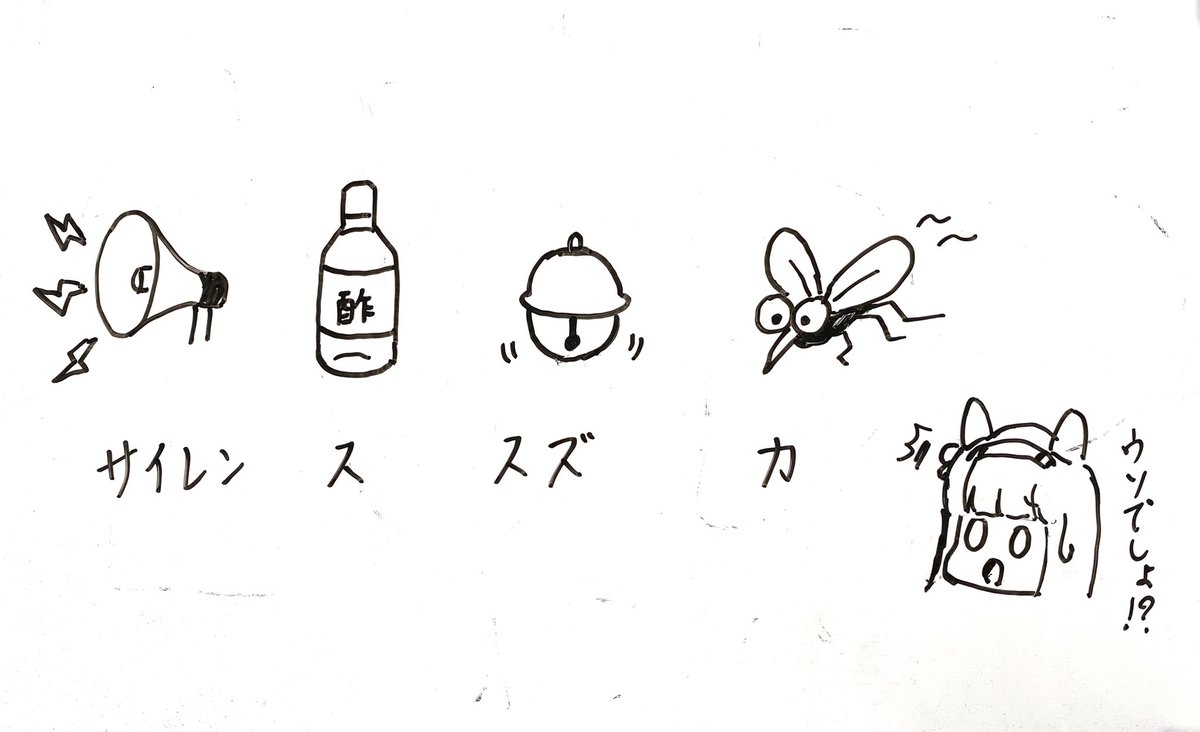 酢
サイレン ス スズ カ
ウソでしょ!?